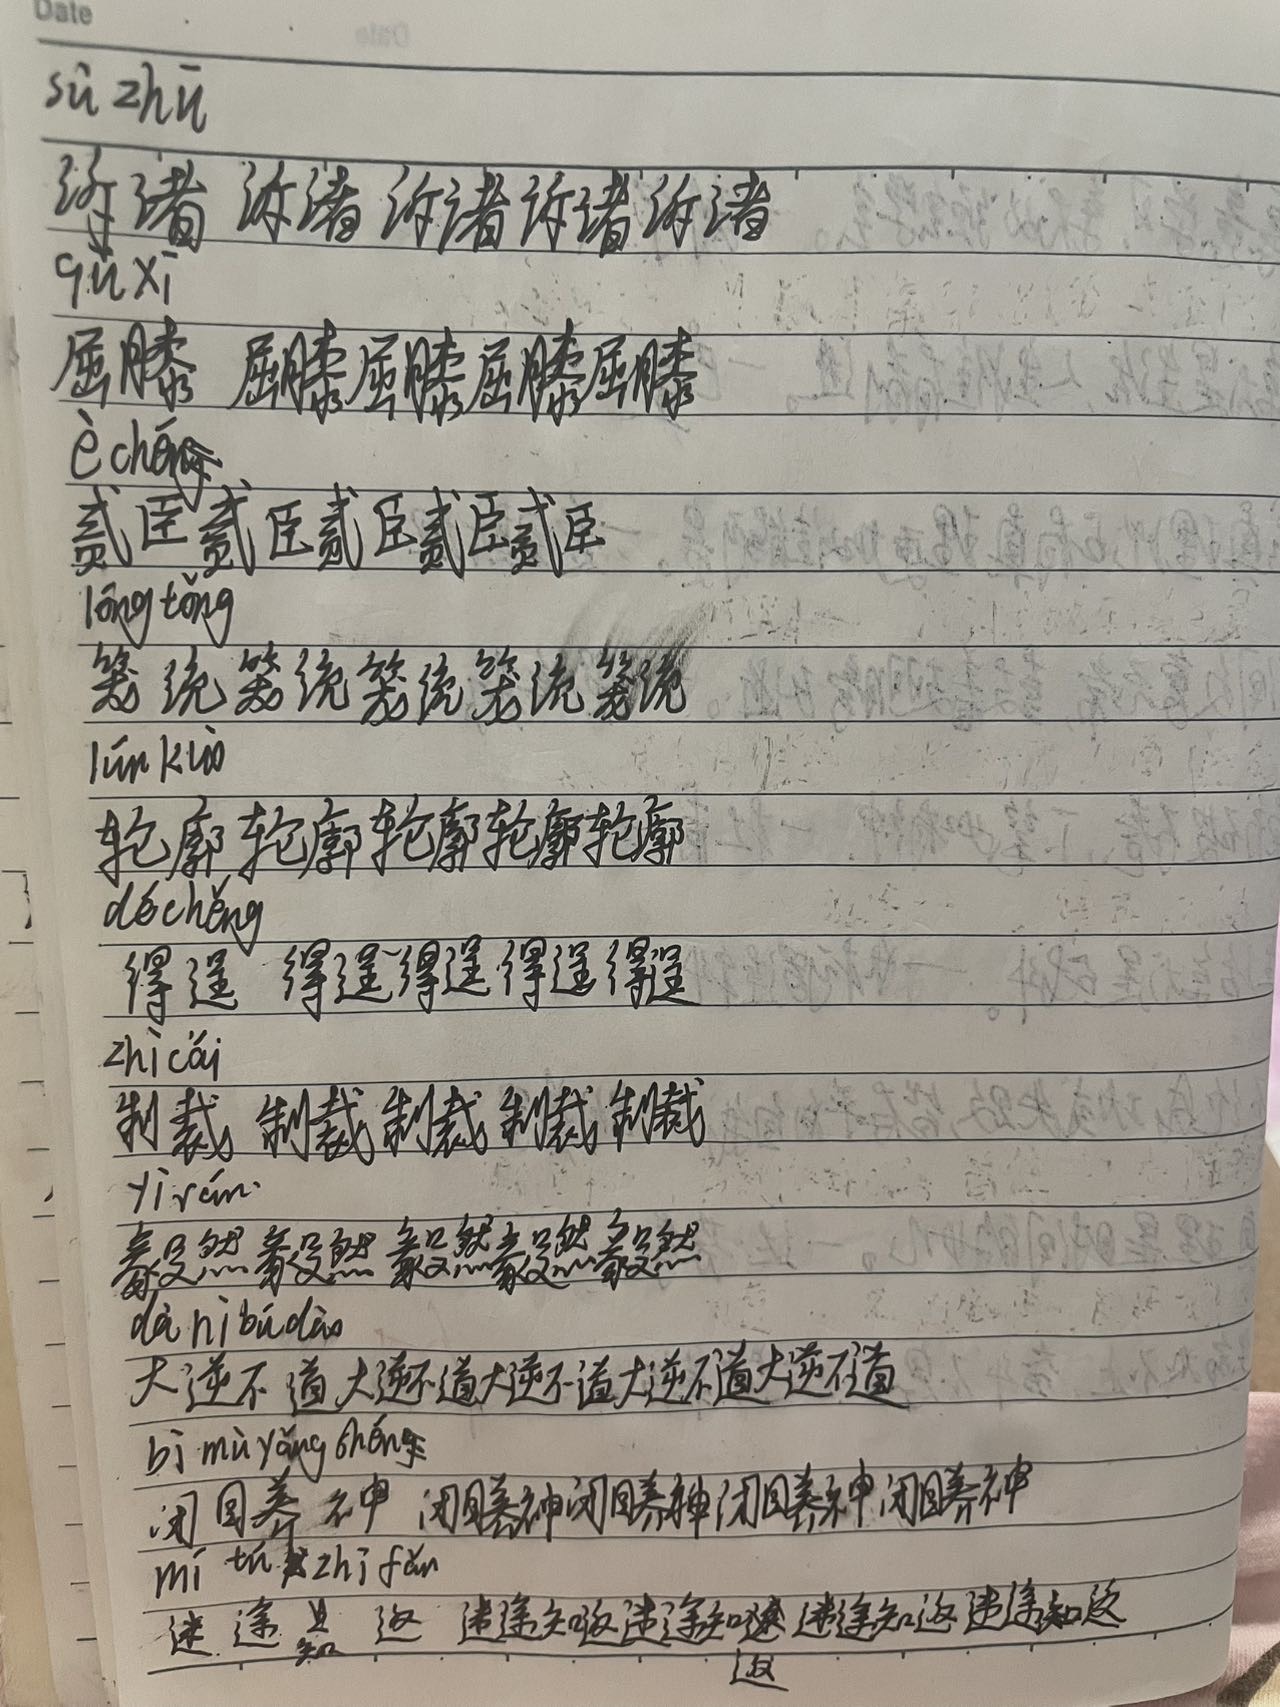 Date
sù zhū
诉诸 诉诸 诉诸 诉诸 诉诸
qū xī
屈膝 屈膝 屈膝 屈膝 屈膝
è chén
贰臣 贰臣 贰臣 贰臣 贰臣
lóng tǒng
笼统 笼统 笼统 笼统 笼统
lún kuò
轮廓 轮廓 轮廓 轮廓 轮廓
dé chěng
得逞 得逞 得逞 得逞 得逞
zhì cái
制裁 制裁 制裁 制裁 制裁
yì rán
毅然 毅然 毅然 毅然 毅然
dà nì bú dào
大逆不道 大逆不道 大逆不道 大逆不道 大逆不道
bì mù yǎng shén
闭目养神 闭目养神 闭目养神 闭目养神 闭目养神
mí tú zhī fǎn
迷途知返 迷途知返 迷途知返 迷途知返 迷途知返